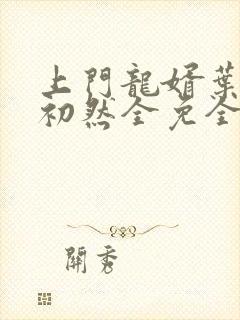 上門龍婿葉
初然全免全
開秀